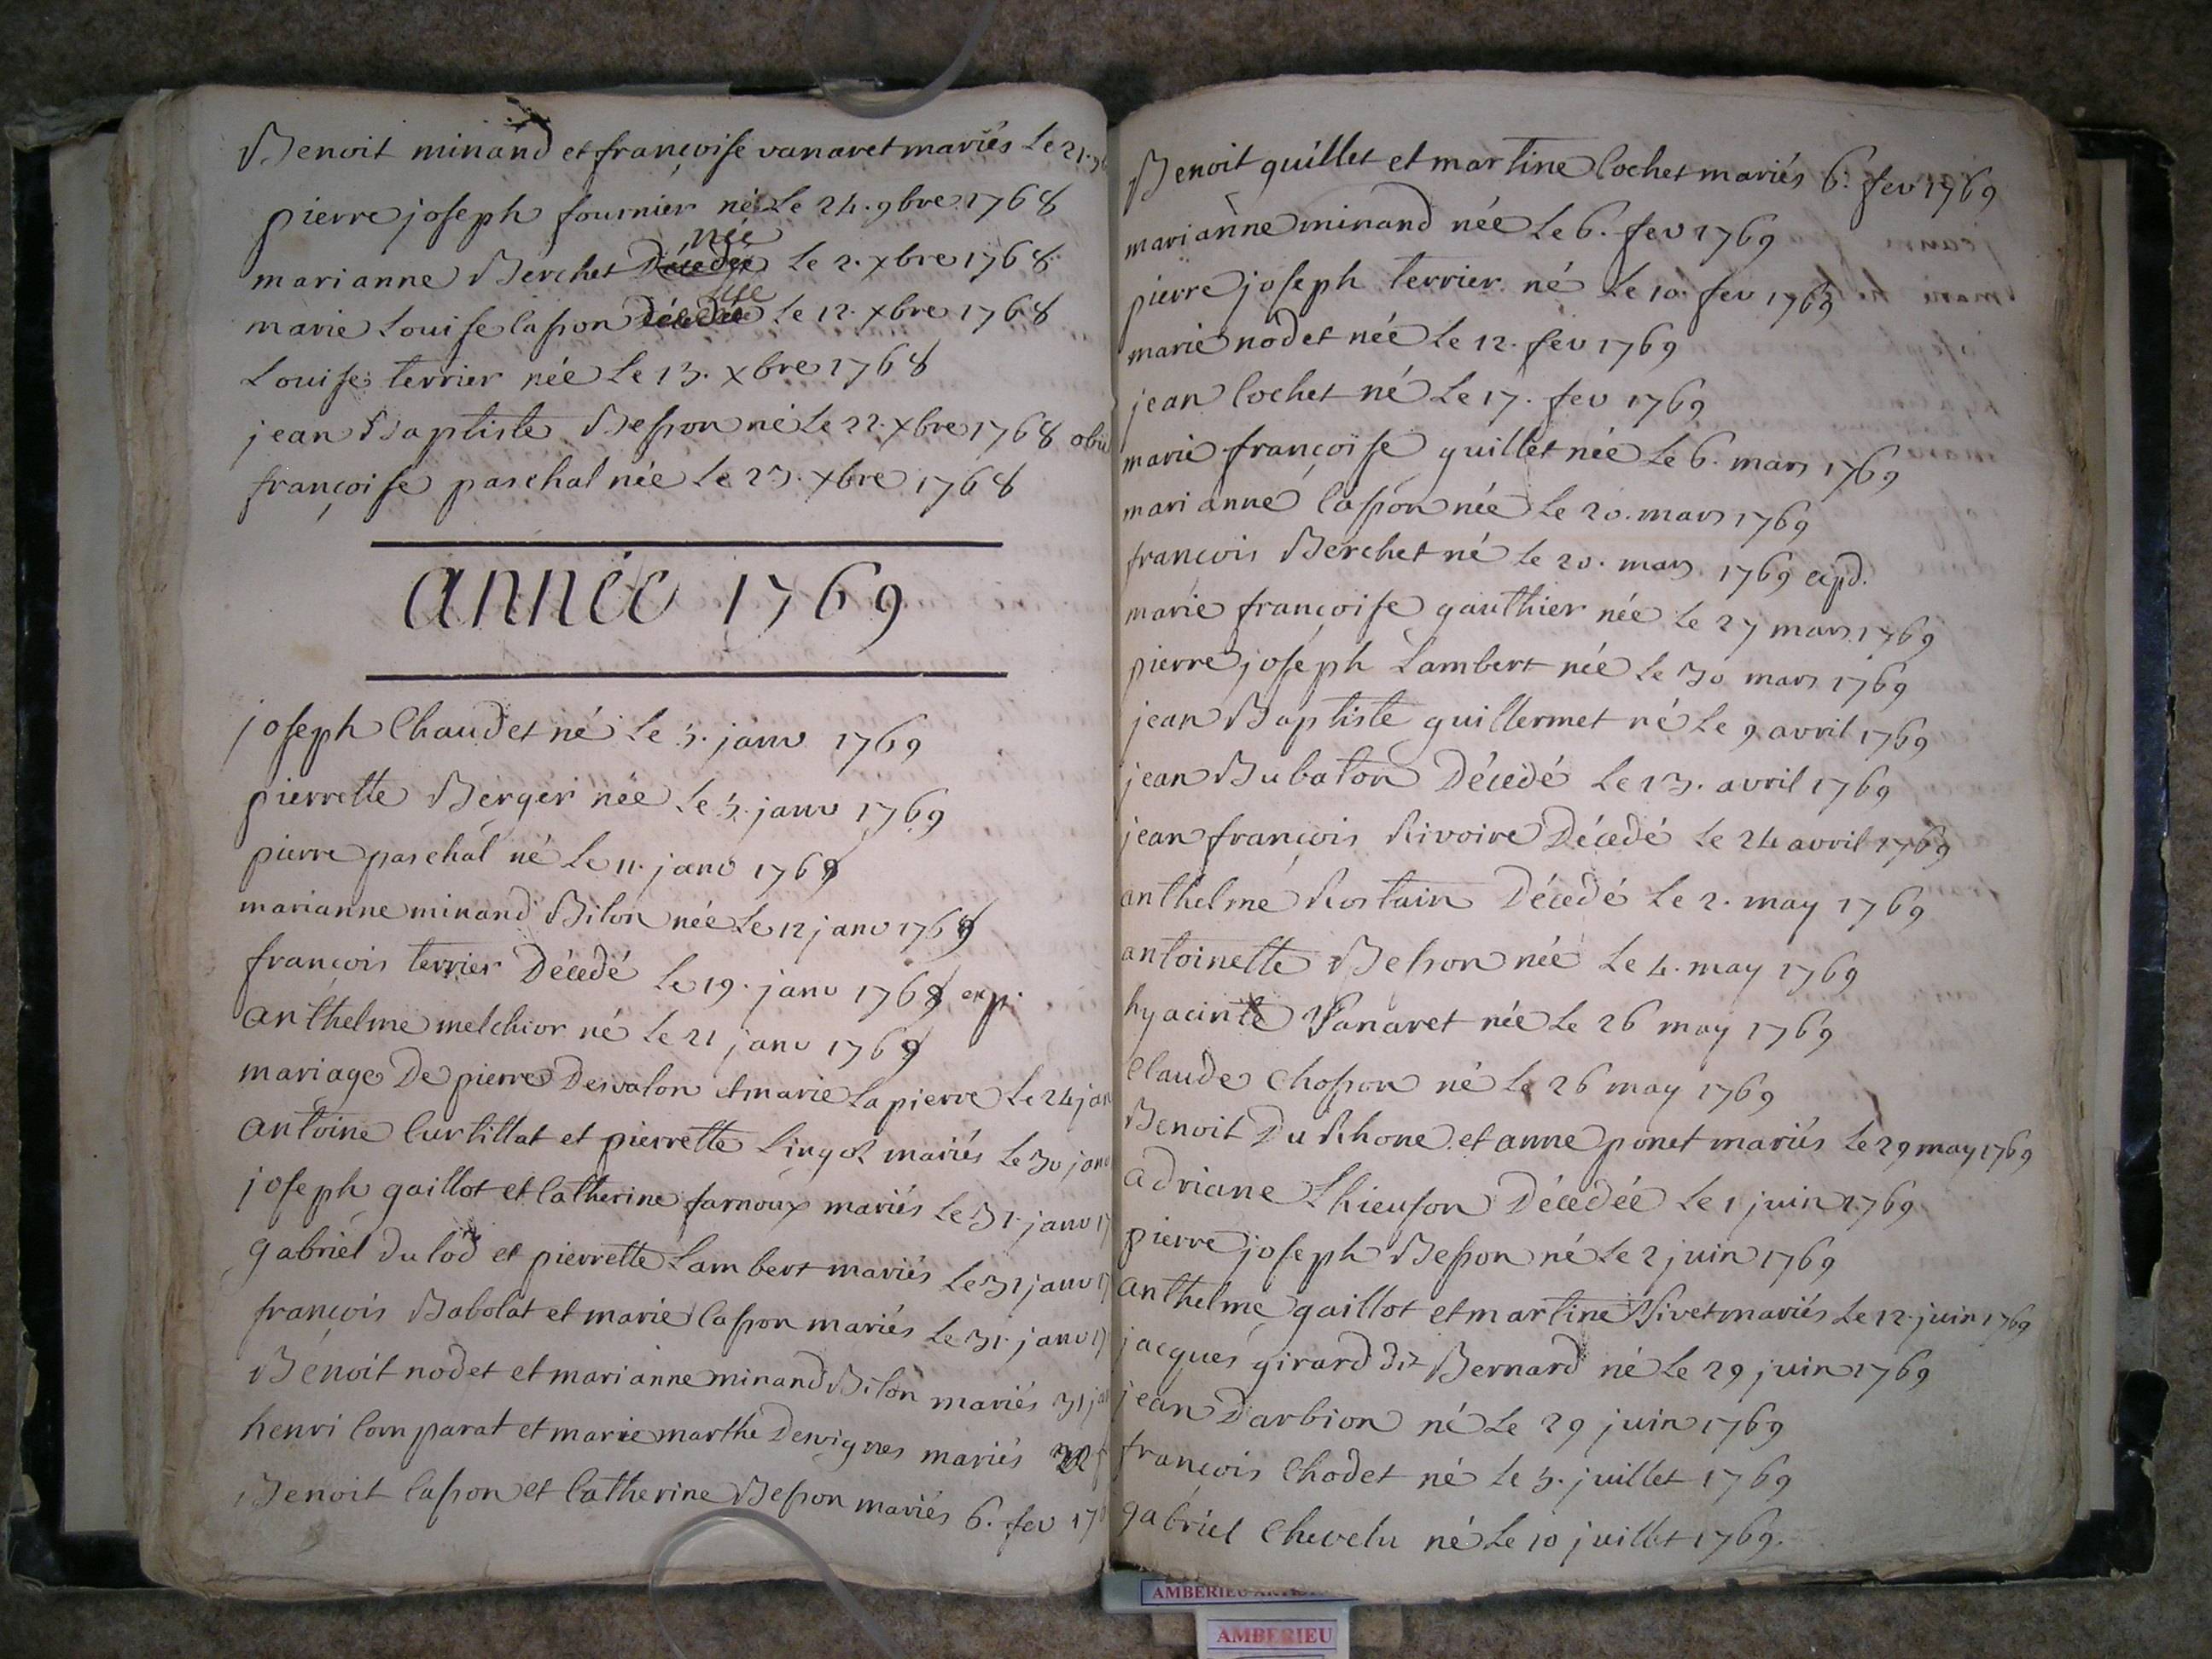 Benoit minand et françoise vanaret mariés Le 21.
pierre joseph fournier né Le 24. 9bre 1768
née
marianne Berchet Décedée Le 2. xbre 1768
née
marie Louise lasson décedée Le 12. xbre 1768
Louise terrier née Le 13. xbre 1768
jean Baptiste Besson né Le 22. xbre 1768 obiit
françoise paschal née Le 23. xbre 1768
année 1769
joseph Chaudet né Le 3. janv 1769
pierrette Berger née Le 3. janv 1769
pierre paschal né Le 11. janv 1769
marianne minand Bilon née Le 12 janv 1769
françois terrier Décedé Le 19. janv 1769 exp.
anthelme melchior né Le 21 janv 1769
mariage De pierre Desvalon et marie Lapierre Le 24 jan
antoine Curtillat et pierrette Lingot mariés Le 30 janv
joseph gaillot et Catherine farnoux mariés Le 31. janv 17
gabriel du lod et pierrette Lambert mariés Le 31 janv 17
françois Babolat et marie Casson mariés Le 31. janv 17
Benoit nodet et marianne minand Bilon mariés 31 jan
henri Comparat et marie marthe Desvignes mariés f
Benoit Casson et Catherine Besson mariés 6. fev 17
Benoit quillet et martine Cochet mariés 6. fev 1769
marianne minand née Le 6. fev 1769
pierre joseph terrier né Le 10. fev 1769
marie nodet née Le 12. fev 1769
jean Cochet né Le 17. fev 1769
marie françoise guillet née Le 6. mars 1769
marianne Casson née Le 20. mars 1769
françois Berchet né le 20. mars 1769 expd.
marie françoise gauthier née Le 27 mars 1769
pierre joseph Lambert née Le 30 mars 1769
jean Baptiste guillermet né Le 9 avril 1769
jean Bubaton Décedé Le 23. avril 1769
jean françois Rivoire Décedé Le 24 avril 1769
anthelme Rostain Décedé Le 2. may 1769
antoinette Besson née Le 4. may 1769
hyacinte Vanaret née Le 26 may 1769
Claude Chosson né Le 26 may 1769
Benoit Du Rhone et anne ponet mariés Le 29 may 1769
adriane Thieuson Décedée Le 1 juin 1769
pierre joseph Besson né Le 2 juin 1769
anthelme gaillot et martine Sivet mariés Le 12. juin 1769
jacques girard dit Bernard né Le 29 juin 1769
jean Darbion né Le 29 juin 1769
françois Chodet né Le 3. juillet 1769
gabriel Chevelu né Le 10 juillet 1769.
AMBERIEU
AMBERIEU